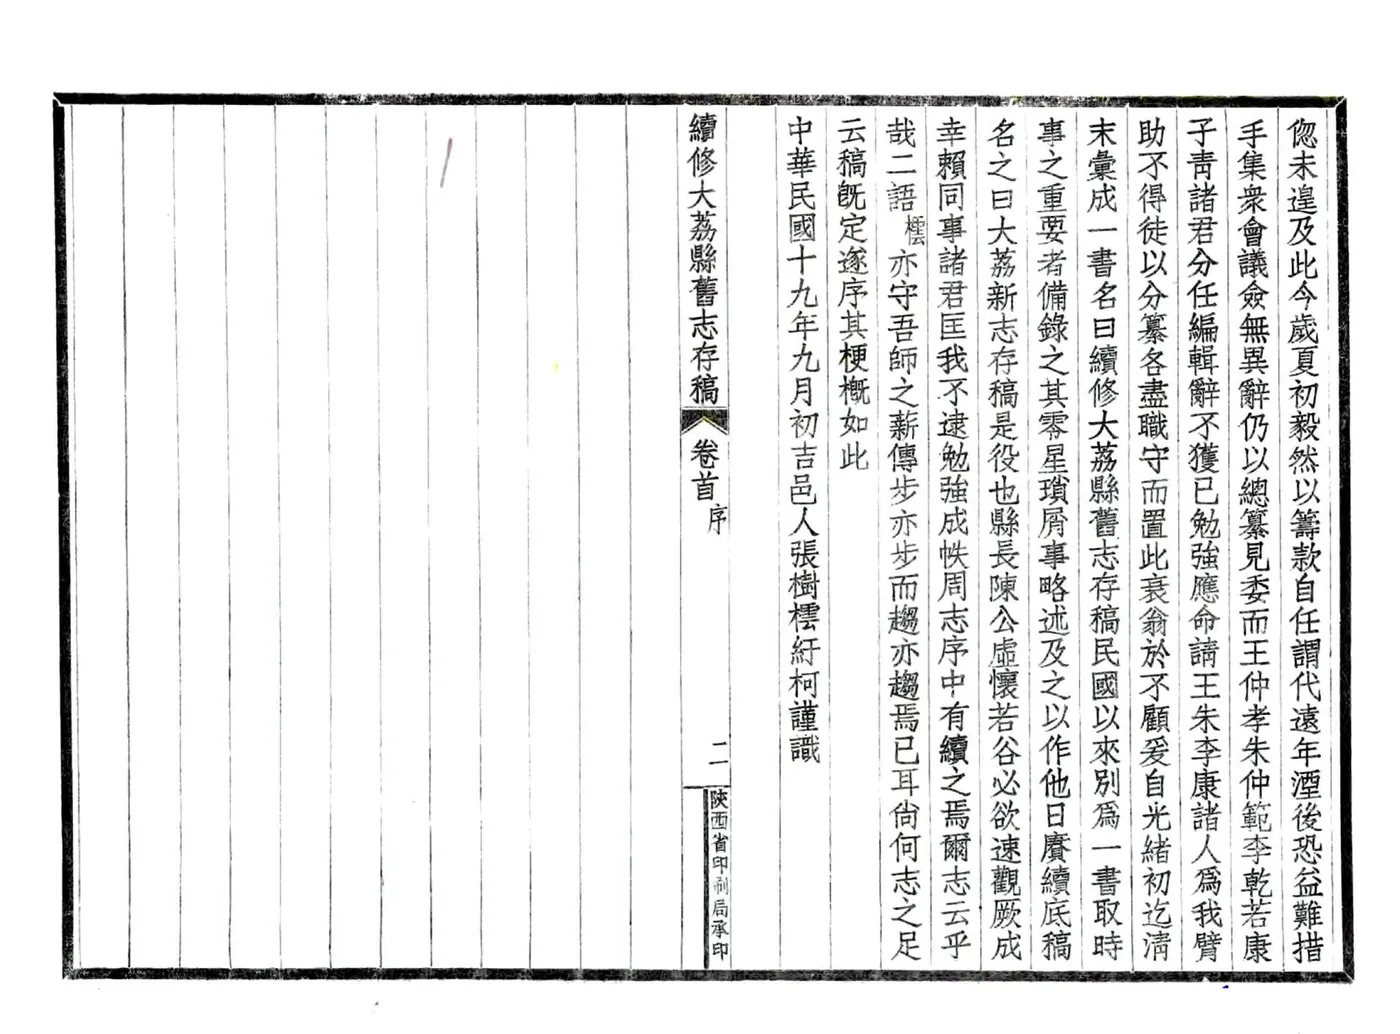 偬未遑及此今歲夏初毅然以籌款自任謂代遠年湮後恐益難措
手集衆會議僉無異辭仍以總纂見委而王仲孝朱仲範李乾若康
子靑諸君分任編輯辭不獲已勉強應命請王朱李康諸人爲我臂
助不得徒以分纂各盡職守而置此衰翁於不顧爰自光緒初迄淸
末彙成一書名曰續修大荔縣舊志存稿民國以來別爲一書取時
事之重要者備錄之其零星瑣屑事略述及之以作他日賡續底稿
名之曰大荔新志存稿是役也縣長陳公虛懷若谷必欲速觀厥成
幸賴同事諸君匡我不逮勉強成帙周志序中有續之焉爾志云乎
哉二語橒亦守吾師之薪傳步亦步而趨亦趨焉已耳尙何志之足
云稿旣定遂序其梗概如此
中華民國十九年九月初吉邑人張樹橒紆柯謹識
續修大荔縣舊志存稿
卷首
序
二
陝西省印刷局承印